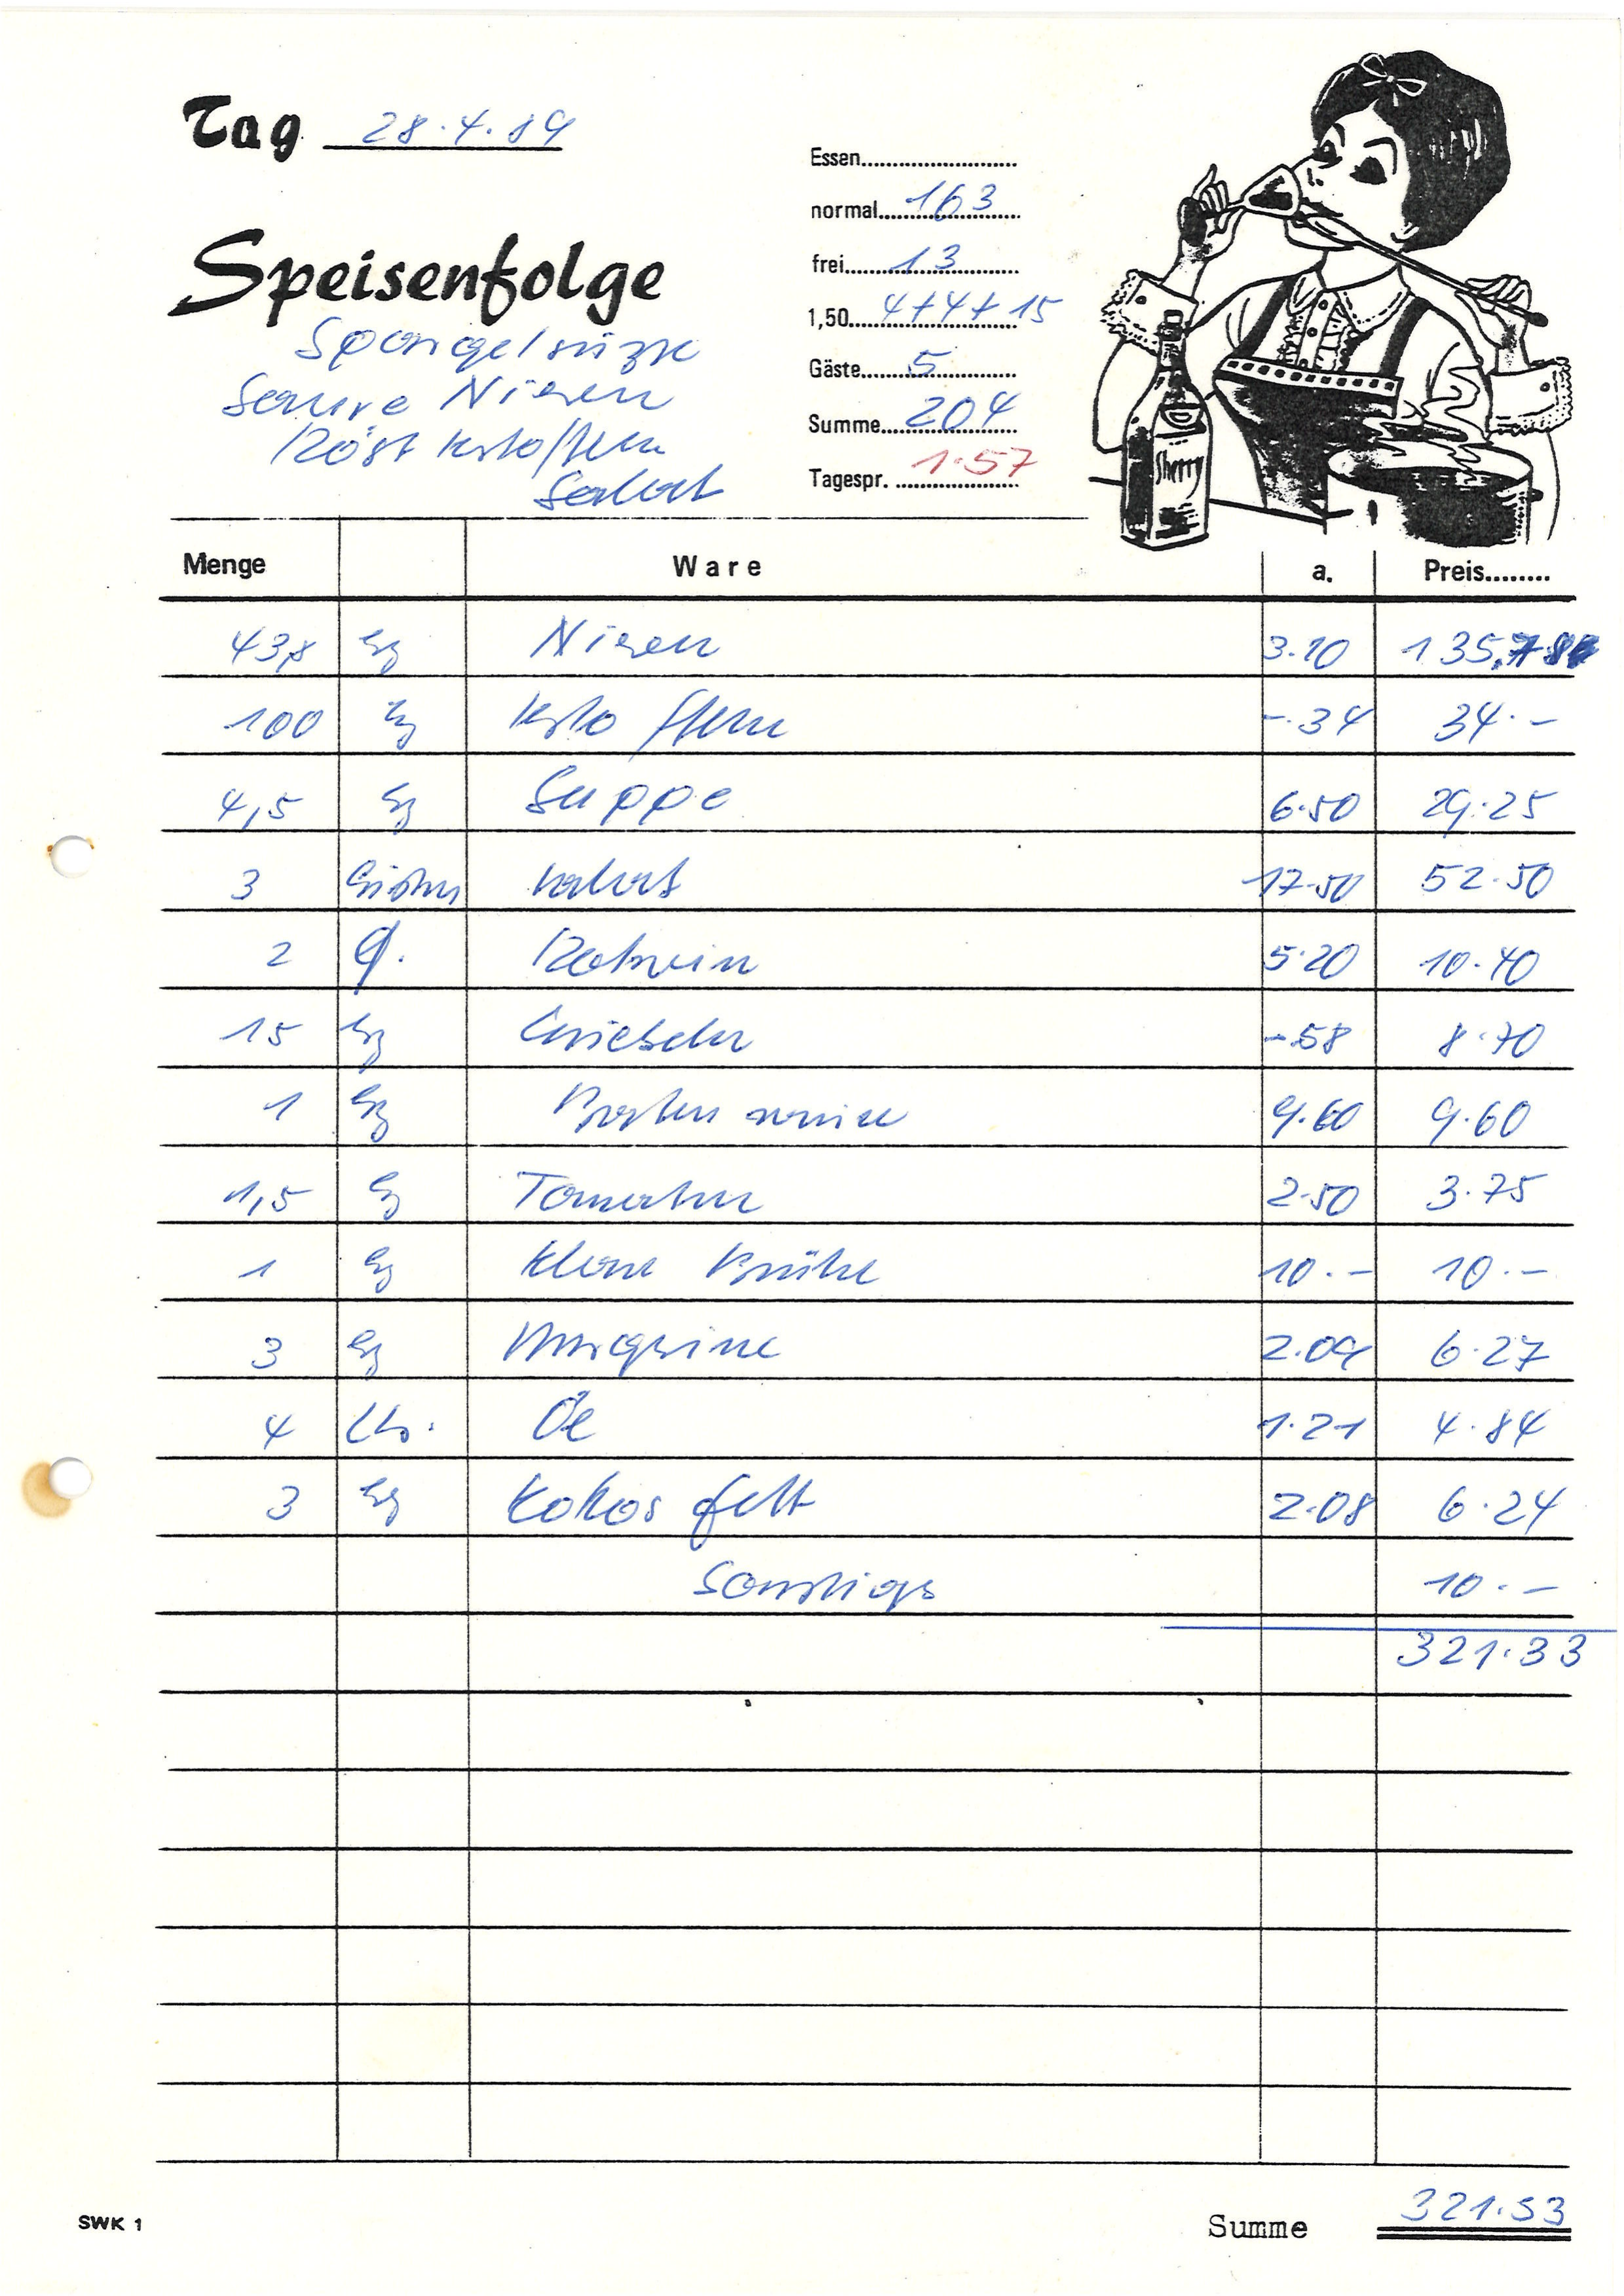 Tag 28.4.89
Essen
normal 163
frei 13
1,50 4+4+15
Gäste 5
Summe 204
Tagespr. 1.57
Speisenfolge
Spargelsuppe
Saure Nieren
Röstkartoffeln
Salat
Sherry
Menge Ware a. Preis
43,8 kg Nieren 3.10 135,78
100 kg Kartoffeln -.34 34.-
4,5 kg Suppe 6.50 29.25
3 Kisten Salat 17.50 52.50
2 Fl. Rotwein 5.20 10.40
15 kg Zwiebeln -.58 8.70
1 kg Bratensauce 9.60 9.60
1,5 kg Tomaten 2.50 3.75
1 kg Klare Brühe 10.- 10.-
3 kg Margarine 2.09 6.27
4 Ltr. Öl 1.21 4.84
3 kg Kokosfett 2.08 6.24
Sonstiges 10.-
321.33
SWK 1
Summe 321.33